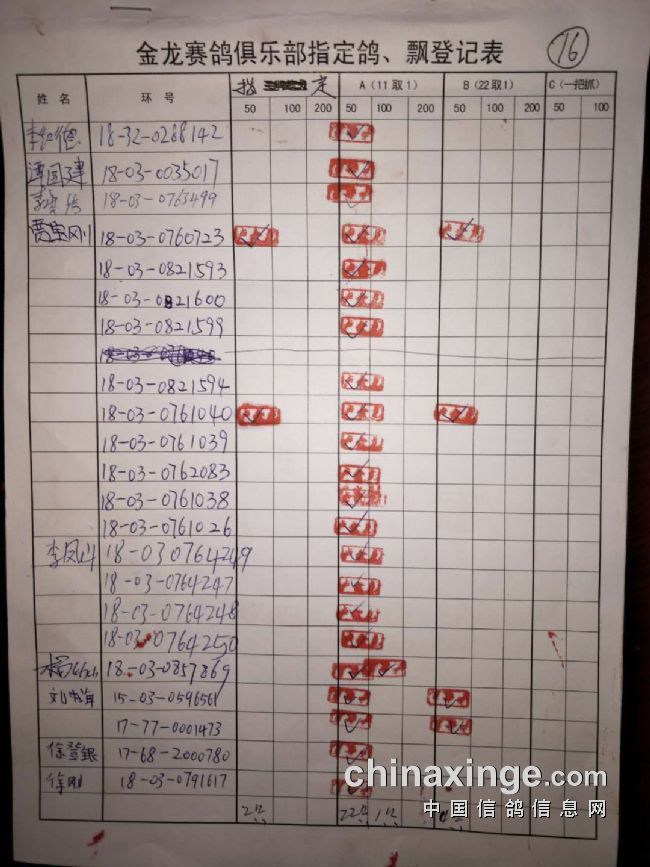 金龙赛鸽俱乐部指定鸽、飘登记表
16
姓名 环号 指定 A（11取1） B（22取1） C（一把抓）
50 100 200 50 100 200 50 100 200 50 100
18-32-0288142
谭国建 18-03-0035017
18-03-0763499
贾宝刚 18-03-0760723
18-03-0821593
18-03-0821600
18-03-0821599
18-03-0821594
18-03-0761040
18-03-0761039
18-03-0762083
18-03-0761038
18-03-0761026
李凤山 18-030764249
18-03-0764247
18-03-0764248
18-03-0764250
18-03-0857869
15-03-0596561
17-77-0001473
徐登银 17-68-2000780
徐刚 18-03-0791617
2只 22只 1只
chinaxinge.com
中国信鸽信息网